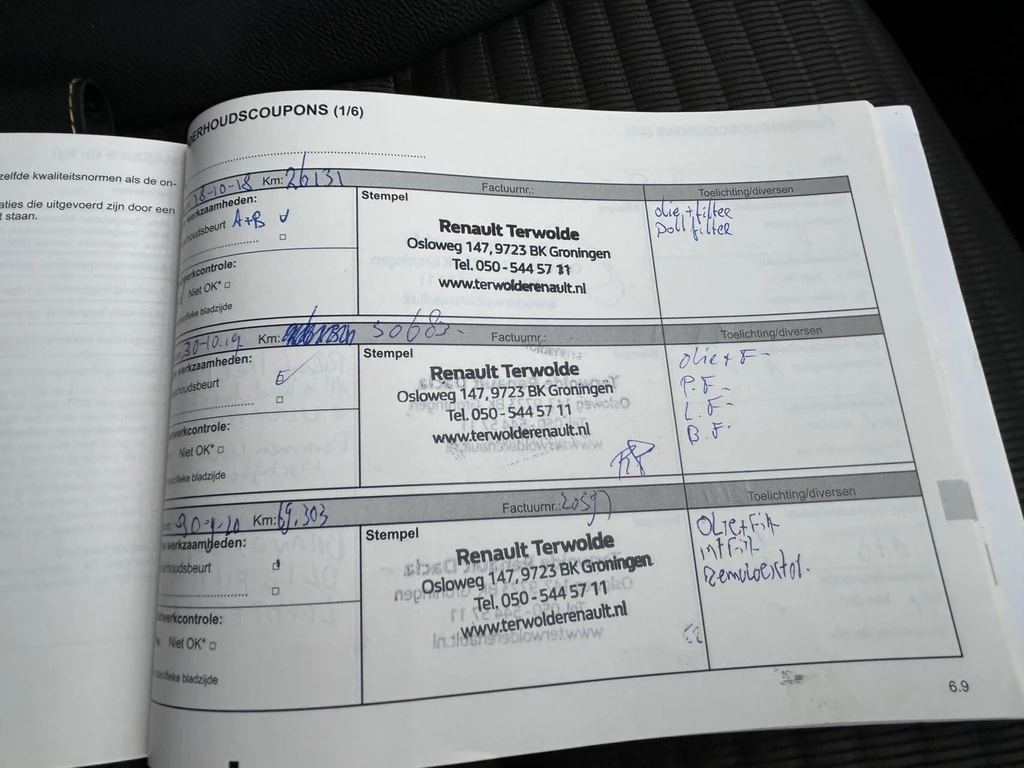 zelfde kwaliteitsnormen als de on-
aties die uitgevoerd zijn door een
t staan.
ERHOUDSCOUPONS (1/6)
18-10-18 Km: 26131 Factuurnr.: Toelichting/diversen
werkzaamheden:
houdsbeurt A+B
werkcontrole:
Niet OK*
specifieke bladzijde
Stempel
Renault Terwolde
Osloweg 147, 9723 BK Groningen
Tel. 050 - 544 57 11
www.terwolderenault.nl
olie + filter
Poll filter
30-10.19 Km: 50683- Factuurnr.: Toelichting/diversen
werkzaamheden:
houdsbeurt E
werkcontrole:
Niet OK*
specifieke bladzijde
Stempel
Renault Terwolde
Osloweg 147, 9723 BK Groningen
Tel. 050 - 544 57 11
www.terwolderenault.nl
olie + F-
P.F-
L.F-
B.F-
Km: 69.303 Factuurnr.: Toelichting/diversen
werkzaamheden:
erhoudsbeurt
werkcontrole:
Niet OK*
specifieke bladzijde
Stempel
Renault Terwolde
Osloweg 147, 9723 BK Groningen
Tel. 050 - 544 57 11
www.terwolderenault.nl
OLie+Filt
int Filt
Remvloeistof.
6.9